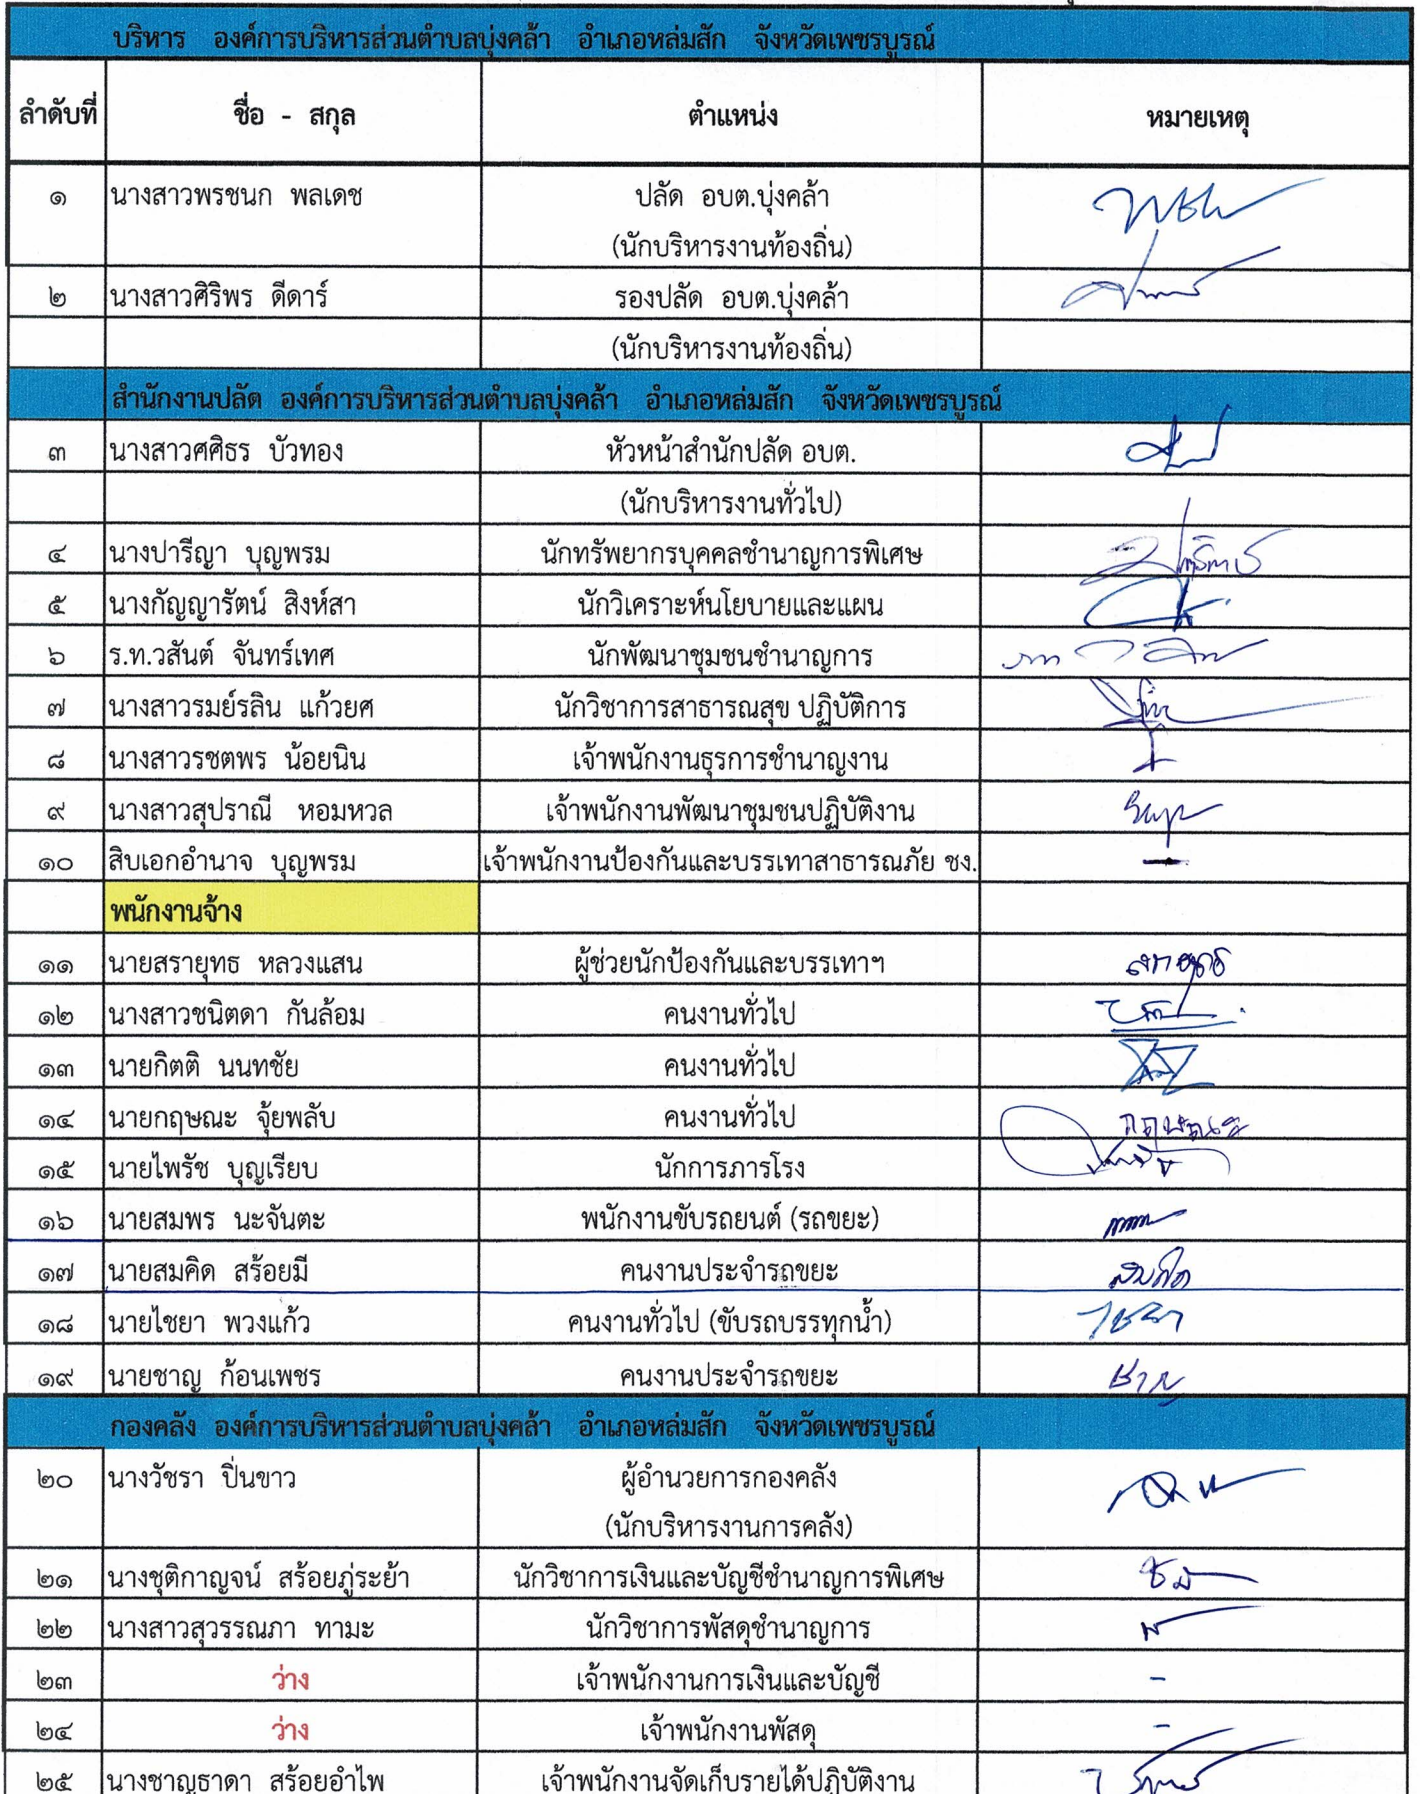 บริหาร องค์การบริหารส่วนตำบลบุ่งคล้า อำเภอหล่มสัก จังหวัดเพชรบูรณ์
ลำดับที่ ชื่อ - สกุล ตำแหน่ง หมายเหตุ
๑ นางสาวพรชนก พลเดช ปลัด อบต.บุ่งคล้า
(นักบริหารงานท้องถิ่น)
๒ นางสาวศิริพร ดีดาร์ รองปลัด อบต.บุ่งคล้า
(นักบริหารงานท้องถิ่น)
สำนักงานปลัด องค์การบริหารส่วนตำบลบุ่งคล้า อำเภอหล่มสัก จังหวัดเพชรบูรณ์
๓ นางสาวศศิธร บัวทอง หัวหน้าสำนักปลัด อบต.
(นักบริหารงานทั่วไป)
๔ นางปารีญา บุญพรม นักทรัพยากรบุคคลชำนาญการพิเศษ
๕ นางกัญญารัตน์ สิงห์สา นักวิเคราะห์นโยบายและแผน
๖ ร.ท.วสันต์ จันทร์เทศ นักพัฒนาชุมชนชำนาญการ
๗ นางสาวรมย์รลิน แก้วยศ นักวิชาการสาธารณสุข ปฏิบัติการ
๘ นางสาวรชตพร น้อยนิน เจ้าพนักงานธุรการชำนาญงาน
๙ นางสาวสุปราณี หอมหวล เจ้าพนักงานพัฒนาชุมชนปฏิบัติงาน
๑๐ สิบเอกอำนาจ บุญพรม เจ้าพนักงานป้องกันและบรรเทาสาธารณภัย ชง. -
พนักงานจ้าง
๑๑ นายสรายุทธ หลวงแสน ผู้ช่วยนักป้องกันและบรรเทาฯ
๑๒ นางสาวชนิตดา กันล้อม คนงานทั่วไป
๑๓ นายกิตติ นนทชัย คนงานทั่วไป
๑๔ นายกฤษณะ จุ้ยพลับ คนงานทั่วไป กฤษณะ
๑๕ นายไพรัช บุญเรียบ นักการภารโรง
๑๖ นายสมพร นะจันตะ พนักงานขับรถยนต์ (รถขยะ)
๑๗ นายสมคิด สร้อยมี คนงานประจำรถขยะ สมคิด
๑๘ นายไชยา พวงแก้ว คนงานทั่วไป (ขับรถบรรทุกน้ำ) ไชยา
๑๙ นายชาญ ก้อนเพชร คนงานประจำรถขยะ ชาญ
กองคลัง องค์การบริหารส่วนตำบลบุ่งคล้า อำเภอหล่มสัก จังหวัดเพชรบูรณ์
๒๐ นางวัชรา ปิ่นขาว ผู้อำนวยการกองคลัง
(นักบริหารงานการคลัง)
๒๑ นางชุติกาญจน์ สร้อยภู่ระย้า นักวิชาการเงินและบัญชีชำนาญการพิเศษ
๒๒ นางสาวสุวรรณภา ทามะ นักวิชาการพัสดุชำนาญการ
๒๓ ว่าง เจ้าพนักงานการเงินและบัญชี -
๒๔ ว่าง เจ้าพนักงานพัสดุ -
๒๕ นางชาญธาดา สร้อยอำไพ เจ้าพนักงานจัดเก็บรายได้ปฏิบัติงาน